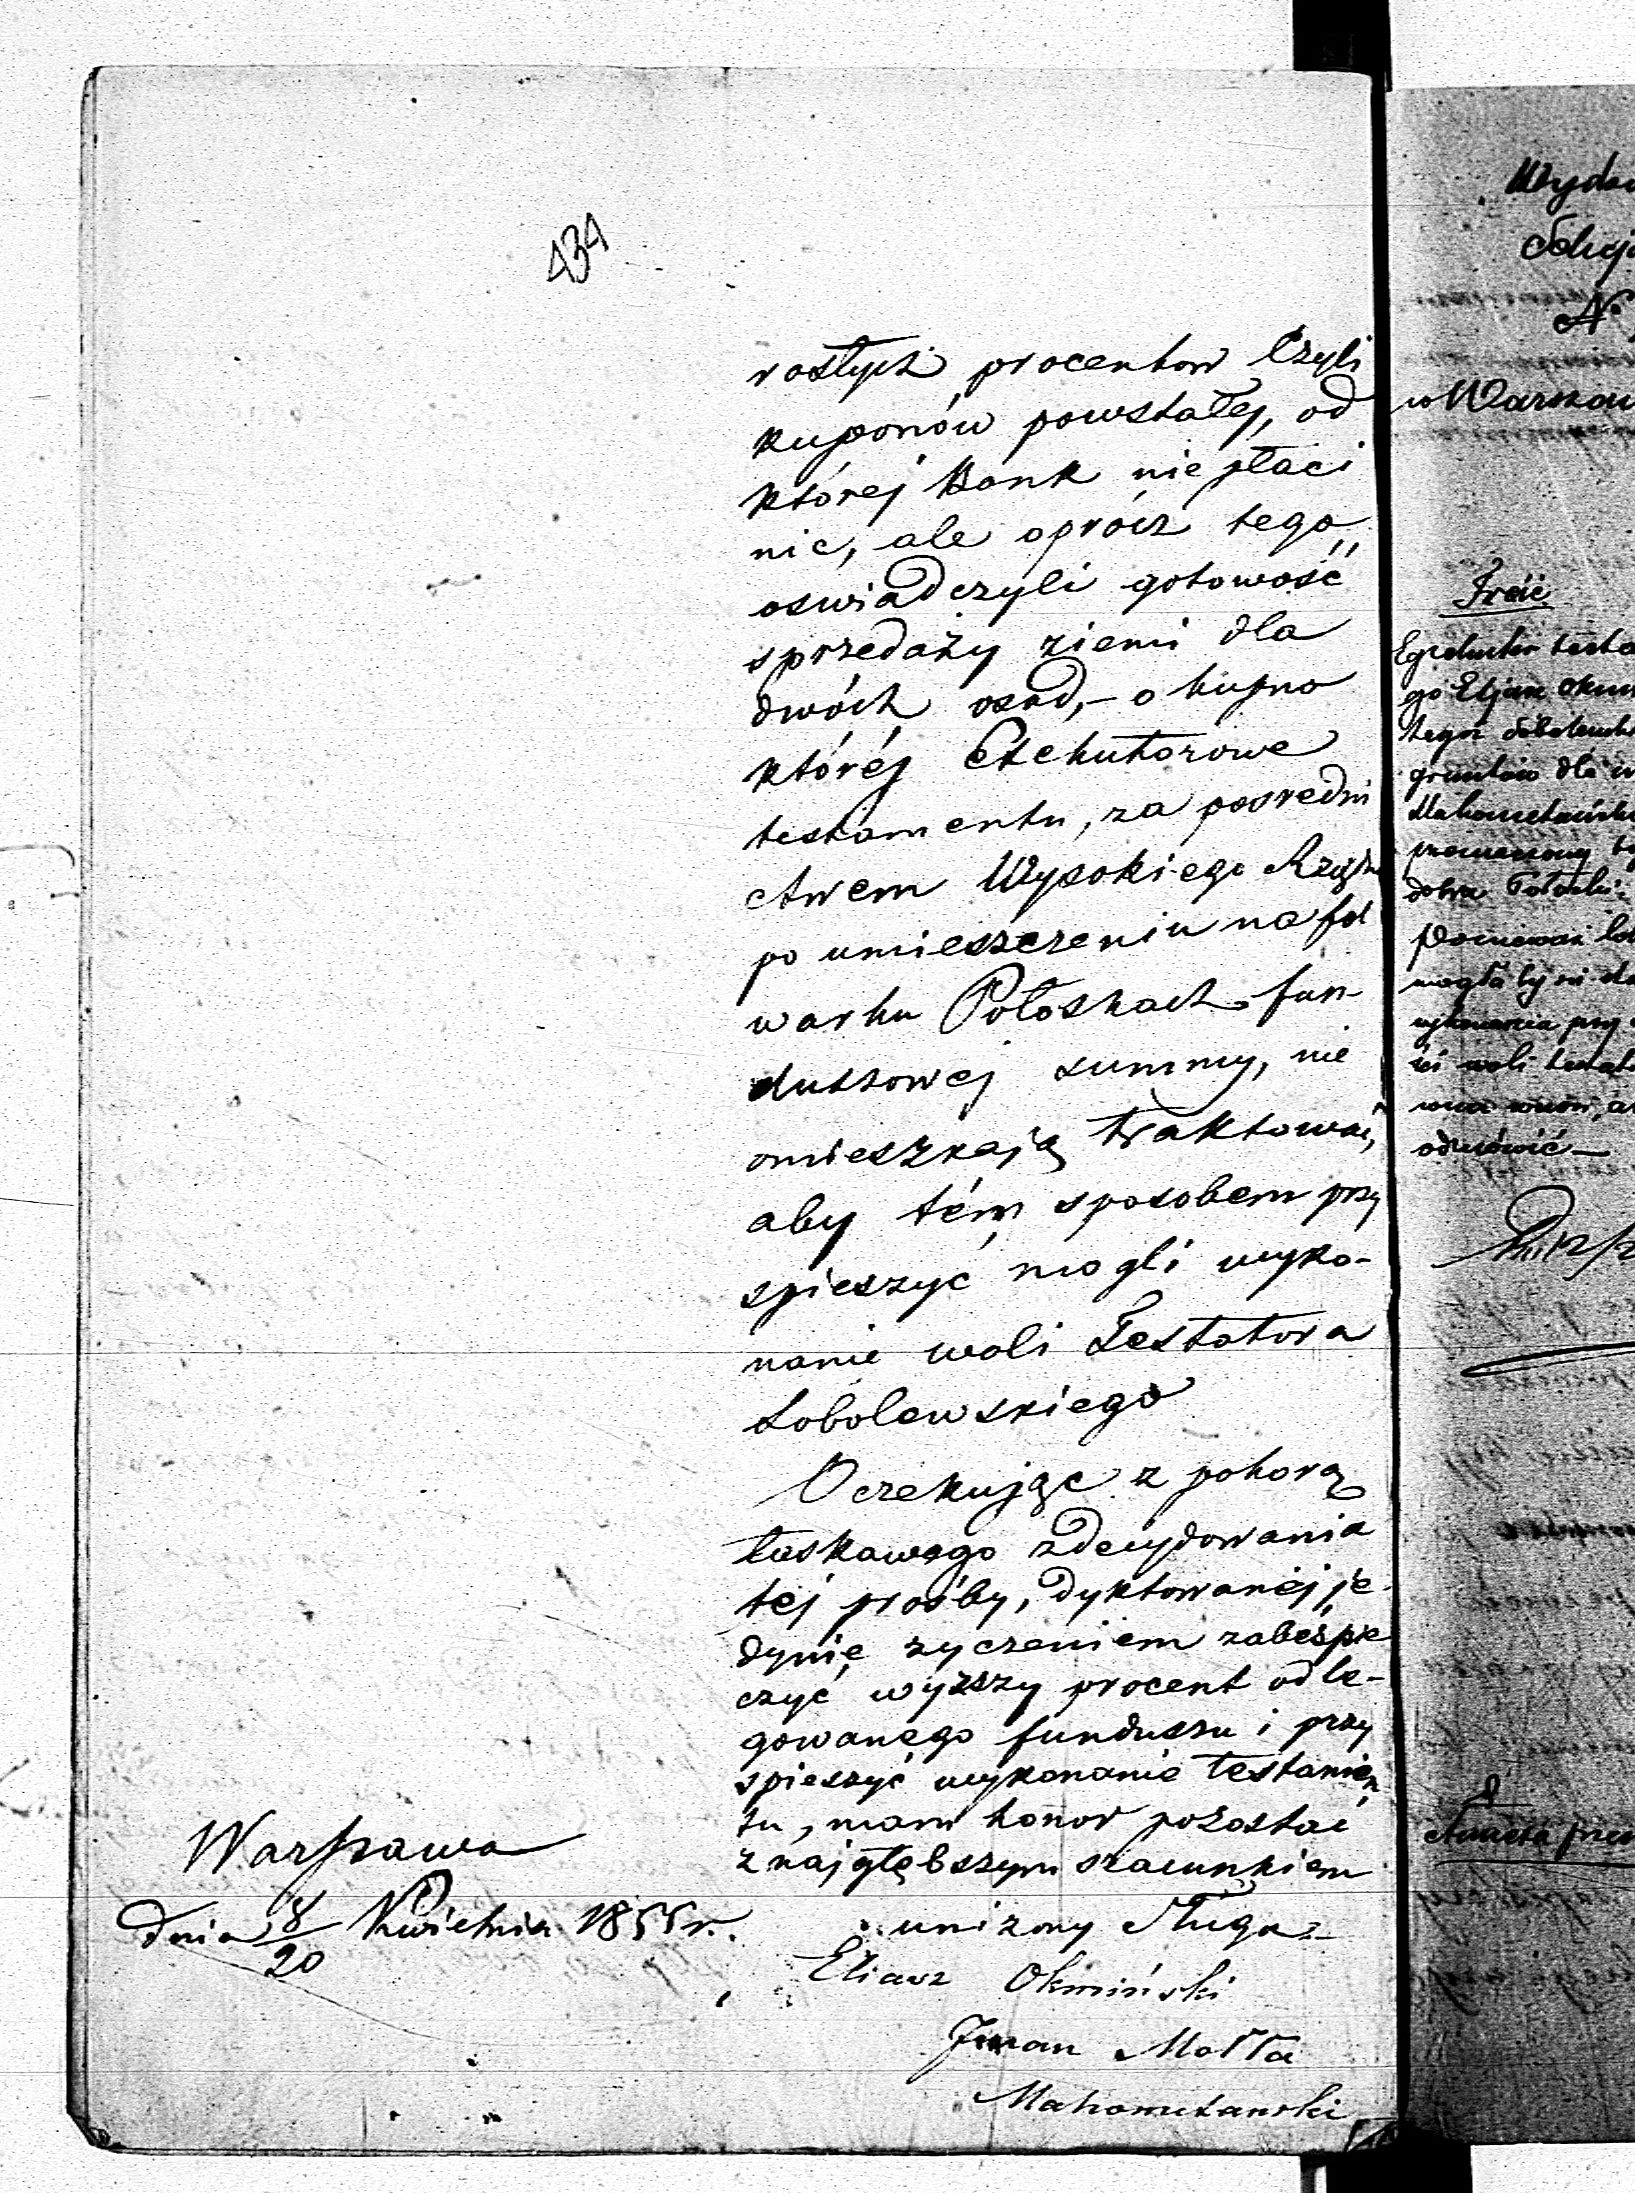 434
rosłych procentow czyli
kuponów powstałej, od
której Bank nie płaci
nic, ale oprócz tego
oswiadczyli gotowość
sprzedaży ziemi dla
dwóch osad, – o kupno
której Exekutorowe
testamentu, za posredni
ctwem Wysokiego Rządu
po umieszczeniu na fol
warku Połoskach fun-
duszowej summy, nie
omieszkają traktować,
aby tém sposobem przy
spieszyć mogli wyko-
nanie woli Testatora
Sobolewskiego
Oczekując z pokorą
łaskawego zdecydowania
téj prośby, dyktowanéj je-
dynie zyczeniem zabespie
czyć wyższy procent od le-
gowanego funduszu i przy
spieszyć wykonanie testamen
tu, mam honor pozostać
z najgłębszym szacunkiem
unizony Sługa
Eliasz Okmiński
Iman Mołła
Mahometanski
Warszawa
dnia 8/20 Kwietnia 1855 r.
w Warszaw
Treść
Egzekutor testa
go Eljasz Okm
gruntów dla
dobra Połoski
Ponieważ
mogła by
woli testat
odmówić —